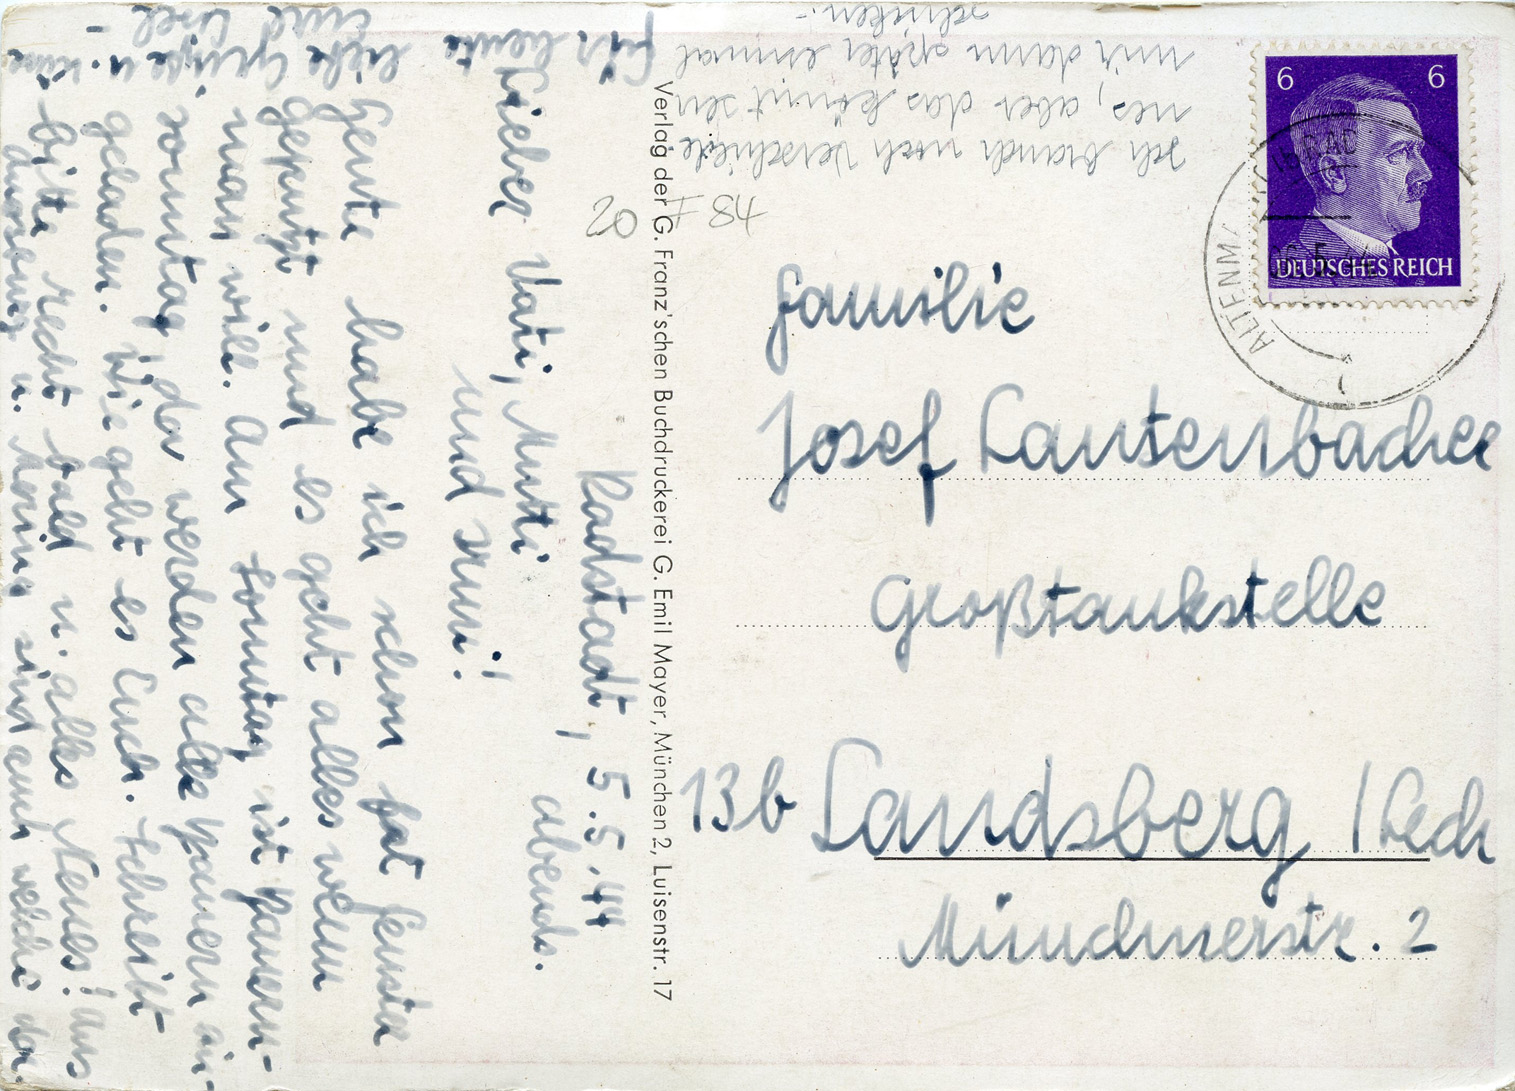 Radstadt, 5.5.44
abends.
Lieber Vati, Mutti
und Sum!
Heute habe ich schon fat fenster
geputzt und es geht alles wenn
man will. Am Sonntag ist Bauern-
sonntag, da werden alle Bauern ein-
geladen. Wie geht es Euch. Schreibt
bitte recht bald u. alles Neues! Aus
u. sind auch welche da.
Für heute
liebe Grüße u.
und
Ich brauch noch verschiede
nes, aber das könnt ihr
mir dann später einmal
schicken.-
20 F 84
Verlag der G. Franz'schen Buchdruckerei G. Emil Mayer, München 2, Luisenstr. 17
6 6
DEUTSCHES REICH
ALTENM
RAD
5
Familie
Josef Lautenbacher
Großtankstelle
13b Landsberg / Lech
Münchnerstr. 2